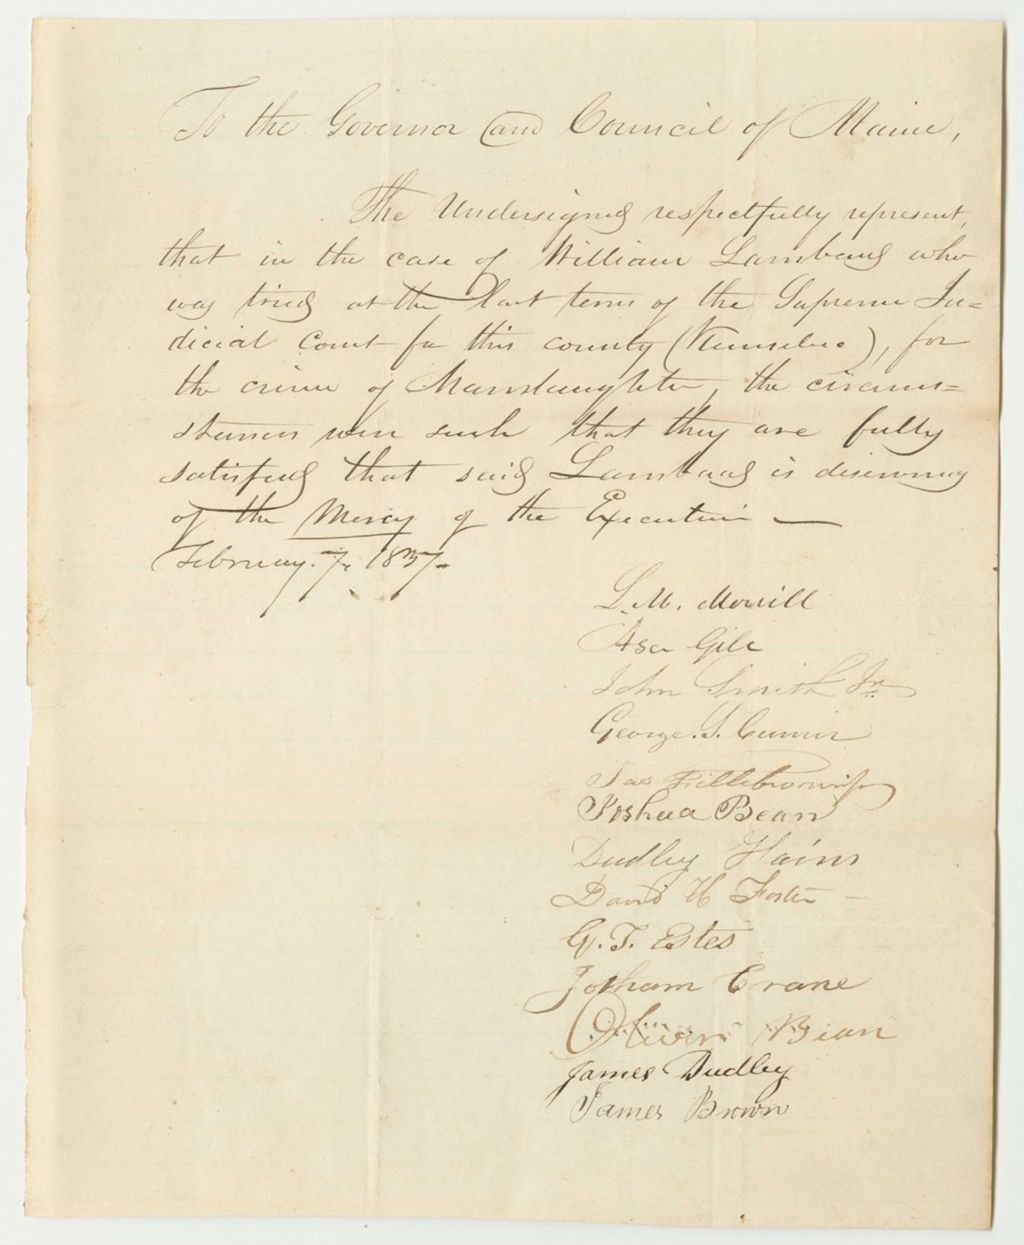 To the Governor and Council of Maine,
The Undersigned respectfully represent,
that in the case of William Lambard who
was tried at the last term of the Supreme Ju=
dicial Court for this county (Kennebec), for
the crime of Manslaughter, the circum=
stances were such that they are fully
satisfied that said Lambard is deserving
of the Mercy of the Executive —
February. 7, 1837.
L. M. Morrill
Asa Gile
John Smith Jr
George. S.
Jas Fillebrown Jr
Joshua Bean
Dudley Hains
David H Foster
G. T. Estes
Jotham Crane
Oliver Bean
James Dudley
James Brown